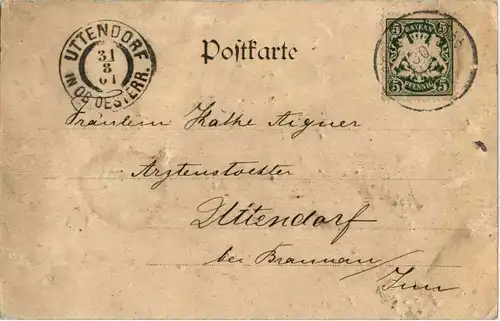 UTTENDORF
31
8
01
IN OB. OESTERR.
Postkarte
BAYERN
5 5
PFENNIG
Fräulein Käthe Aigner
Arztenstochter
Uttendorf
bei Braunau/
Inn